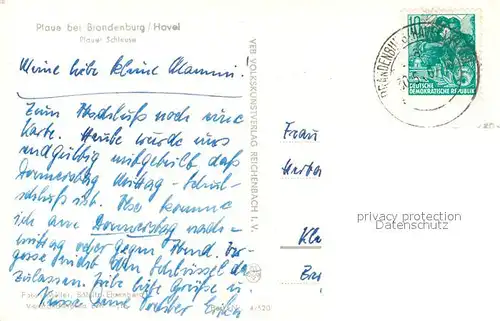 Plaue bei Brandenburg/Havel
Plauer Schleuse
Meine liebe kleine Mammi.
Zum Abschluß noch eine
Karte. Heute wurde uns
endgültig mitgeteilt daß
Donnerstag Mittag - Schul-
schluß ist. Also komme
ich am Donnerstag nach-
mittag oder gegen Abend. Ver-
gesse nicht den Schlüssel da
zulassen. Viele liebe Grüße u.
Küsse Deine Tochter Erika
VEB VOLKSKUNSTVERLAG REICHENBACH I. V.
BRANDENBURG (HAVEL)
10
DEUTSCHE
DEMOKRATISCHE REPUBLIK
Frau
privacy protection
Datenschutz
Foto
4/120